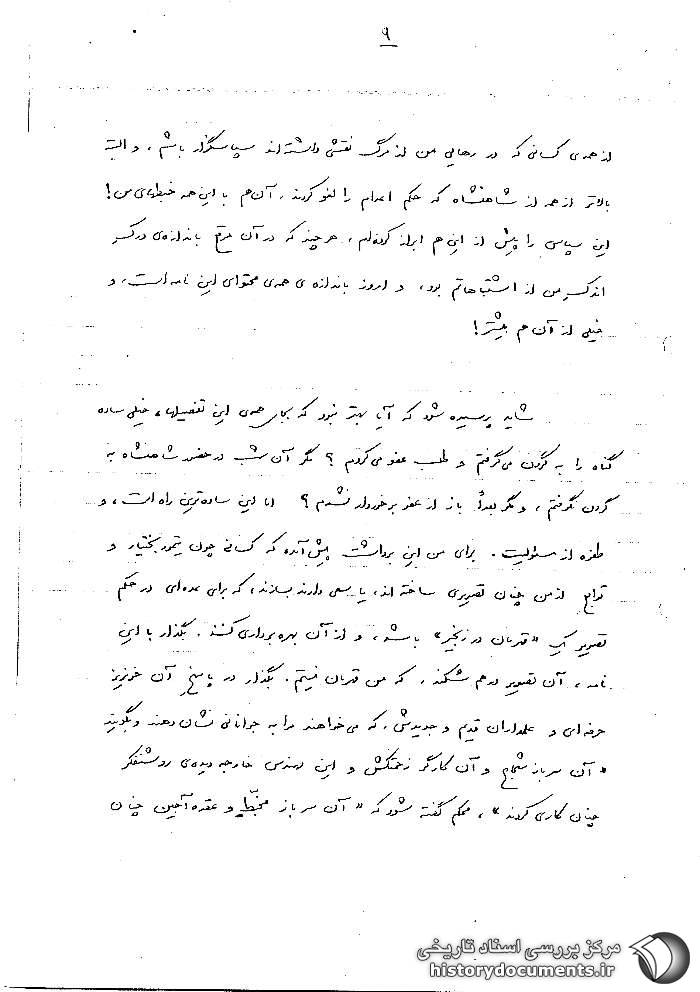 ۹
از همه‌ی کسانی که در رهایی من از مرگ نقشی داشته‌اند سپاسگزار باشم، و البته
بالاتر از همه از شاهنشاه که حکم اعدام را لغو کردند. آن هم با این همه خبطهای من!
این سپاس را پیش از این هم ابراز کرده‌ام، هر چند که در آن موقع باندازه‌ی درک
اندک من از اشتباهاتم بود، و امروز باندازه‌ی همه‌ی محتوای این نامه است، و
خیلی از آن هم بیشتر!
شاید پرسیده شود که آیا بهتر نبود که بجای همه‌ی این تفصیلها، خیلی ساده
گناه را به گردن می‌گرفتم و طلب عفو می‌کردم؟ مگر آن شب در حضور شاهنشاه به
گردن نگرفتم، و مگر بعداً باز از عفو برخوردار نشدم؟ اما این ساده‌ترین راه است، و
طفره از مسئولیت. برای من این برداشت پیش آمده که کسانی چون تیمور بختیار و
توابع از من چنان تصویری ساخته‌اند، یا سعی دارند بسازند، که برای عده‌ای در حکم
تصویر یک «قهرمان در زنجیر» باشد، و از آن بهره‌برداری کنند. بگذار با این
نامه، آن تصویر درهم شکند، که من قهرمان نیستم. بگذار در پاسخ آن خونریز
حرفه‌ای و علمداران قدیم و جدیدش، که می‌خواهند مرا به جوانانی نشان دهند و بگویند
«آن سرباز شجاع و آن کارگر زحمتکش و این مهندس خارجه دیده‌ی روشنفکر
چنان کاری کردند»، محکم گفته شود که «آن سرباز مخبّط و عقده‌آجین چنان
مرکز بررسی اسناد تاریخی
historydocuments.ir